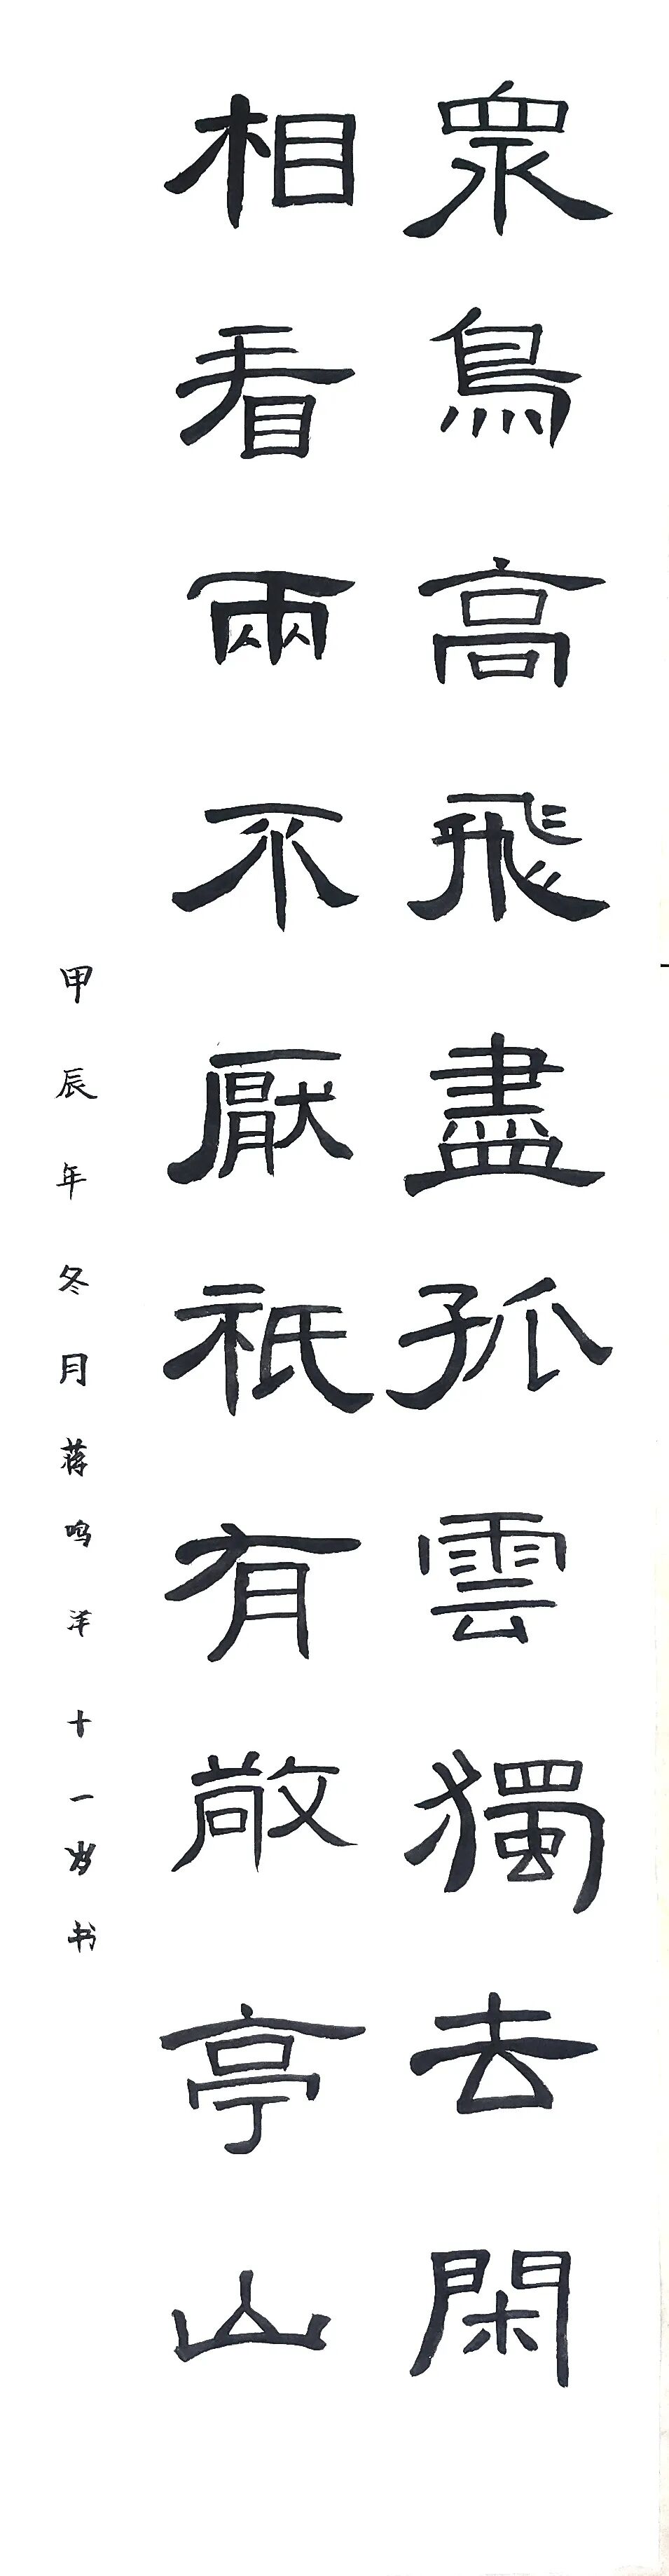 眾鳥高飛盡孤雲獨去閑
相看兩不厭祇有敬亭山
甲辰年冬月蒋鸣洋十一岁书